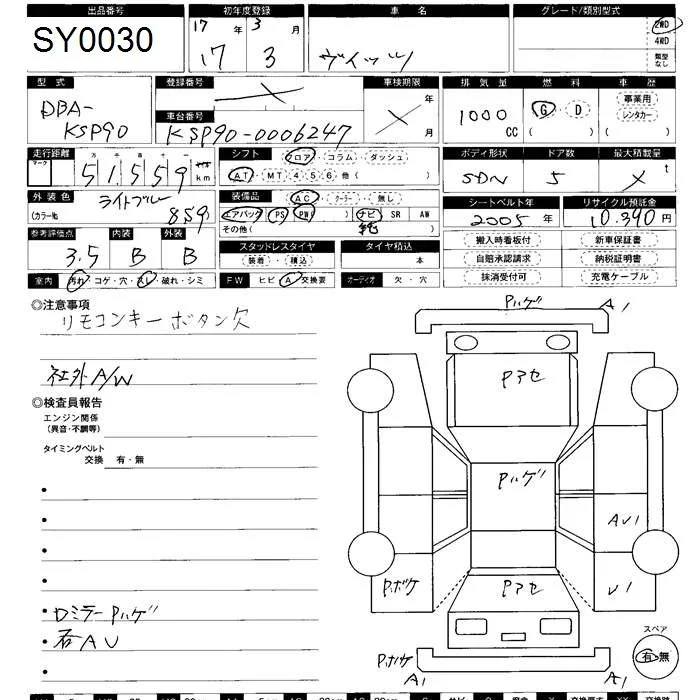 出品番号 初年度登録 車名 グレード/類別型式
SY0030 17 年 3 月
17 3 ヴィッツ
2WD
4WD
類型なし
型式 登録番号 車検期限 排気量 燃料 車歴
DBA-
KSP90
年 月
1000 CC
G D
( )
事業用
レンタカー
( )
車台番号 KSP90-0006247
走行距離 マーク 十 万 千 百 十 一
51,559 km
シフト フロア コラム ダッシュ
AT MT 4 5 6 他( )
ボディ形状 ドア数 最大積載量
SDN 5 t
外装色 ライトブルー
(カラー№) 859
装備品 AC クーラー 無し
エアバック PS PW( ) ナビ SR AW
その他( 純 )
シートベルト年 リサイクル預託金
2005年 10,390円
参考評価点 内装 外装
3.5 B B
スタッドレスタイヤ タイヤ積込
装着 積込 本
搬入時看板付 新車保証書
自賠承認請求 納税証明書
抹消受付可 充電ケーブル
室内 汚れ・コゲ・穴・スレ・破れ・シミ FW ヒビ A 交換要 オーディオ 欠・穴
◎注意事項
リモコンキーボタン欠
社外A/W
◎検査員報告
エンジン関係
(異音・不調等)
タイミングベルト
交換 有・無
Dミラー Pハゲ
右AU
Pハゲ A1
Pアセ
Pハゲ
AU1
P.ボケ Pアセ U1
P.ボケ
A1 A1
スペア
有・無